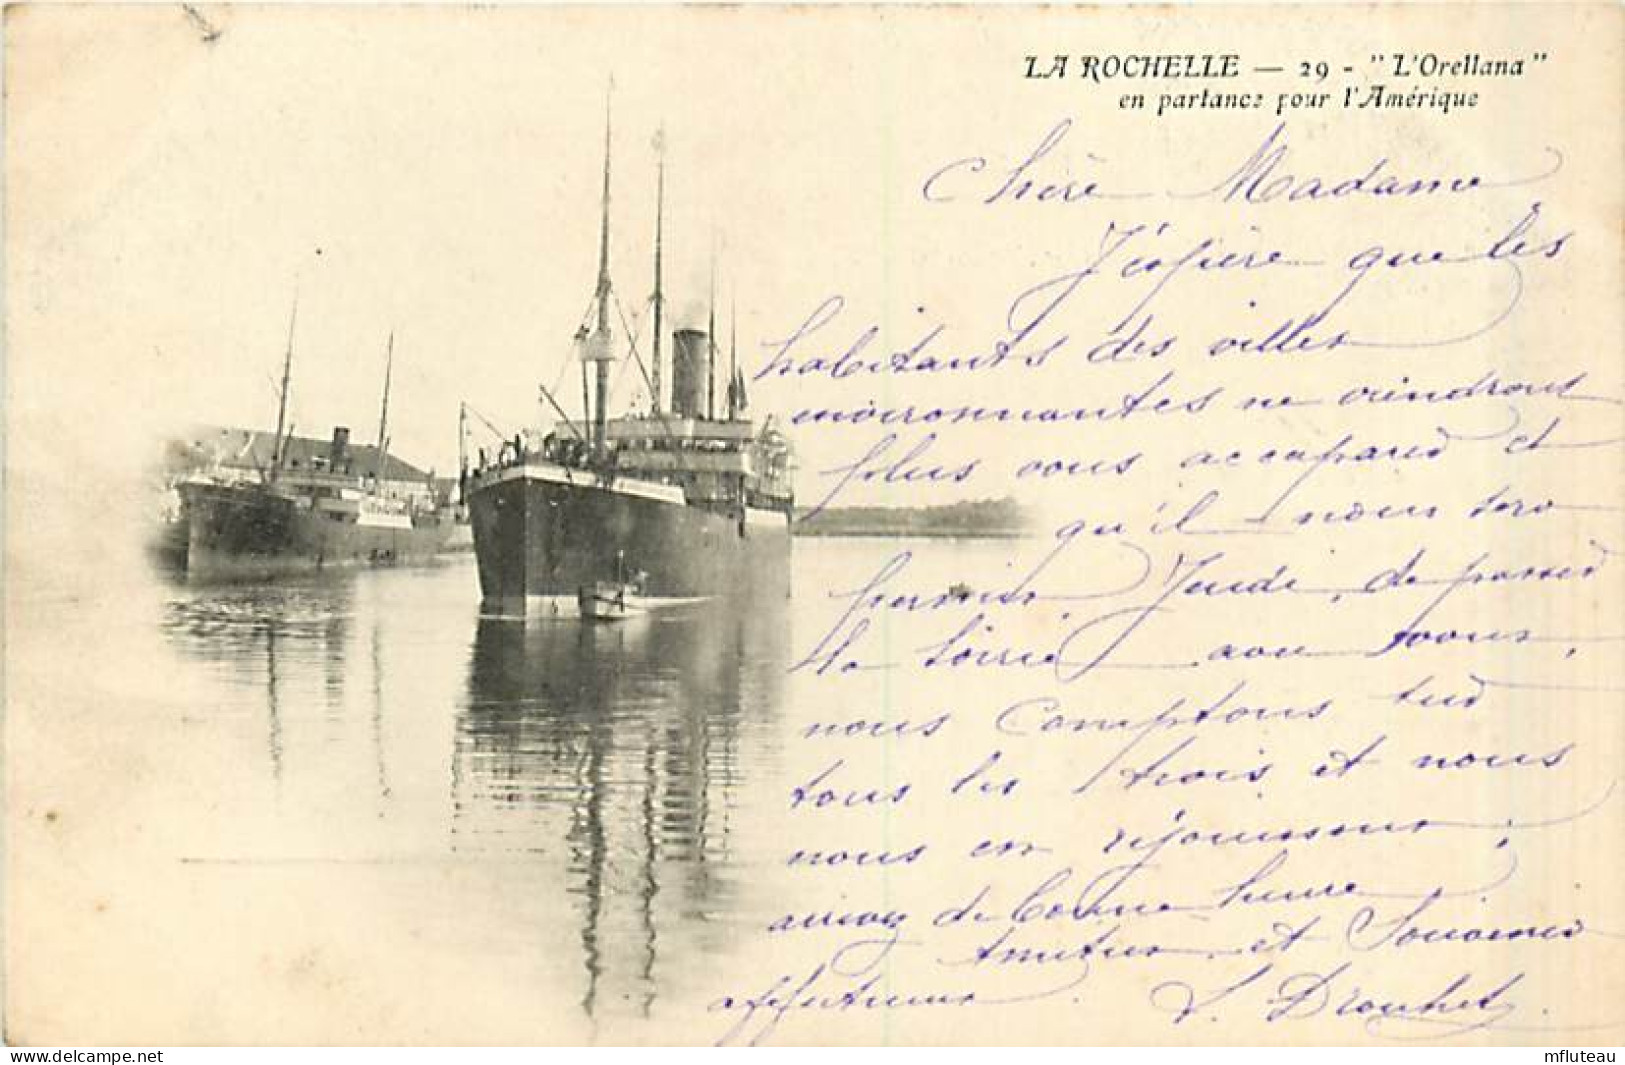 LA ROCHELLE — 29 - "L'Orellana"
en partance pour l'Amérique
Chère Madame
J'éspère que les
habitants des villes
environnantes ne viendront
plus vous accaparer et
qu'il nous sera
permis, Jeudi, de passer
la soirée avec vous,
nous comptons sur
tous les trois et nous
nous en réjouissons;
arrivez de bonne heure
Amitiés et Souvenirs
affectueux
Drouhet.
www.delcampe.net
mfluteau